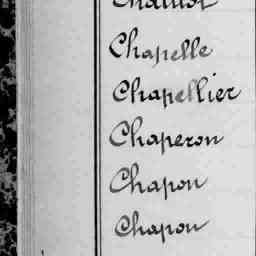 Chapelle
Chapellier
Chaperon
Chapon
Chapon